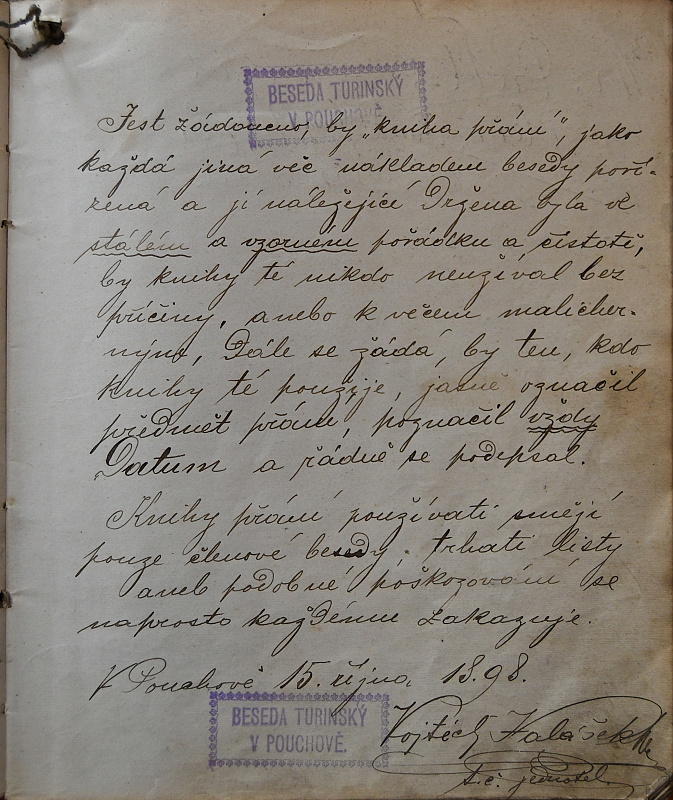 BESEDA TURINSKÝ
V POUCHOVĚ
Jest žádoucno, by „kniha přání“, jako
každá jiná věc nákladem besedy poří-
zená a jí náležející Držena byla ve
stálém a vzorném pořádku a čistotě,
by knihy té nikdo neužíval bez
příčiny, anebo k věcem malicher-
ným, Dále se žádá, by ten, kdo
knihy té použije, jasně označil
předmět přání, poznačil vždy
Datum a řádně se podepsal.
Knihy přání používati smějí
pouze členové besedy. trhati listy
aneb podobné poškozování se
naprosto každému zakazuje.
V Pouchově 15. října 1898.
BESEDA TURINSKÝ
V POUCHOVĚ.
Vojtěch
t.č. jednatel.